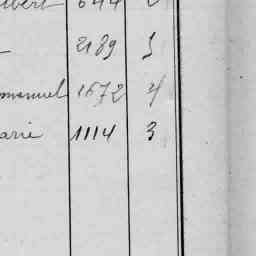 644
2189 5
manuel 1672 4
arie 1114 3